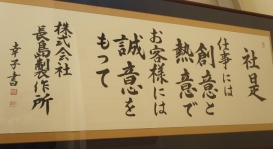 社是
仕事には
創意と
熱意で
お客様には
誠意を
もって
株式会社
長島製作所
幸子書